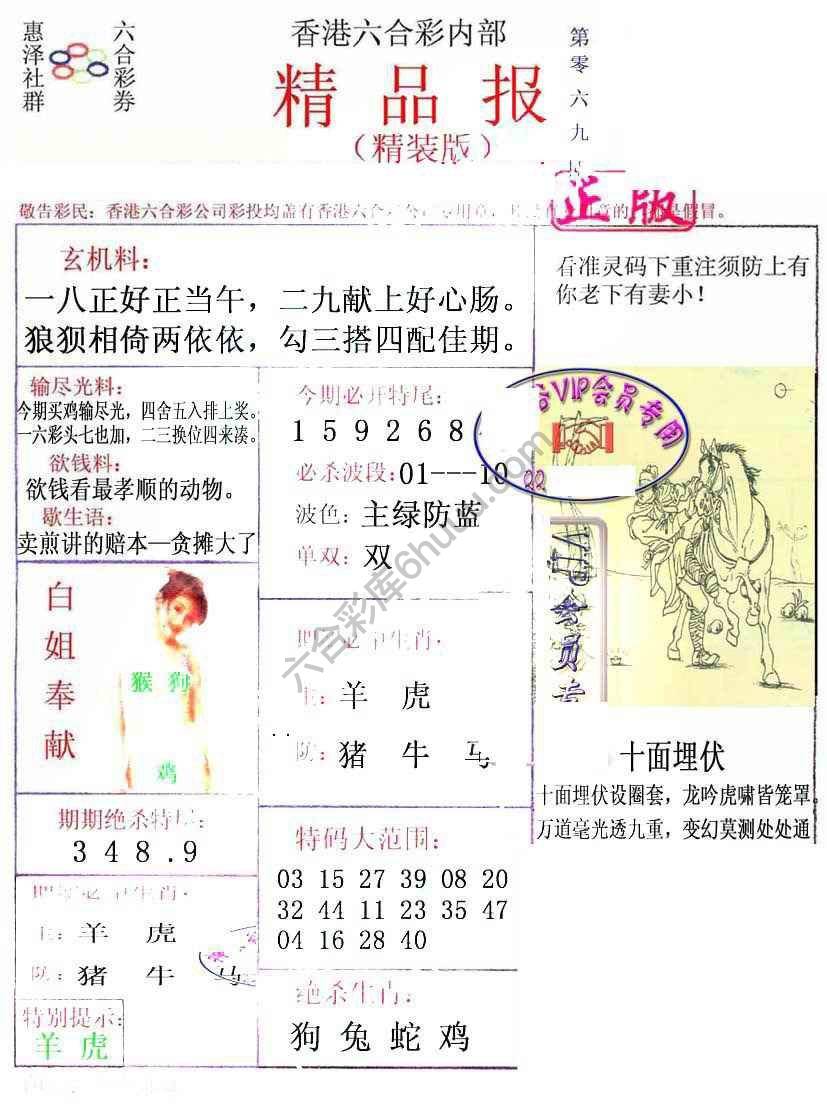 惠泽社群
六合彩券
香港六合彩内部
精品报
（精装版）
第零六九
正版
敬告彩民：香港六合彩公司彩投均盖有香港六合
假冒。
玄机料：
一八正好正当午，二九献上好心肠。
狼狈相倚两依依，勾三搭四配佳期。
看准灵码下重注须防上有
你老下有妻小！
输尽光料：
今期买鸡输尽光，四舍五入排上奖。
一六彩头七也加，二三换位四来凑。
欲钱料：
欲钱看最孝顺的动物。
歇生语：
卖煎讲的赔本—贪摊大了
白姐奉献
猴 狗
鸡
期期绝杀特尾：
3 4 8 . 9
主：羊 虎
防：猪 牛 马
特别提示：
羊 虎
今期必开特尾：
1 5 9 2 6 8
必杀波段：01---10
波色：主绿防蓝
单双：双
主：羊 虎
防：猪 牛 马
特码大范围：
03 15 27 39 08 20
32 44 11 23 35 47
04 16 28 40
绝杀生肖：
狗 兔 蛇 鸡
VIP会员专用
QQ
VIP会员专
十面埋伏
十面埋伏设圈套，龙吟虎啸皆笼罩。
万道毫光透九重，变幻莫测处处通
六合彩库6huu.com